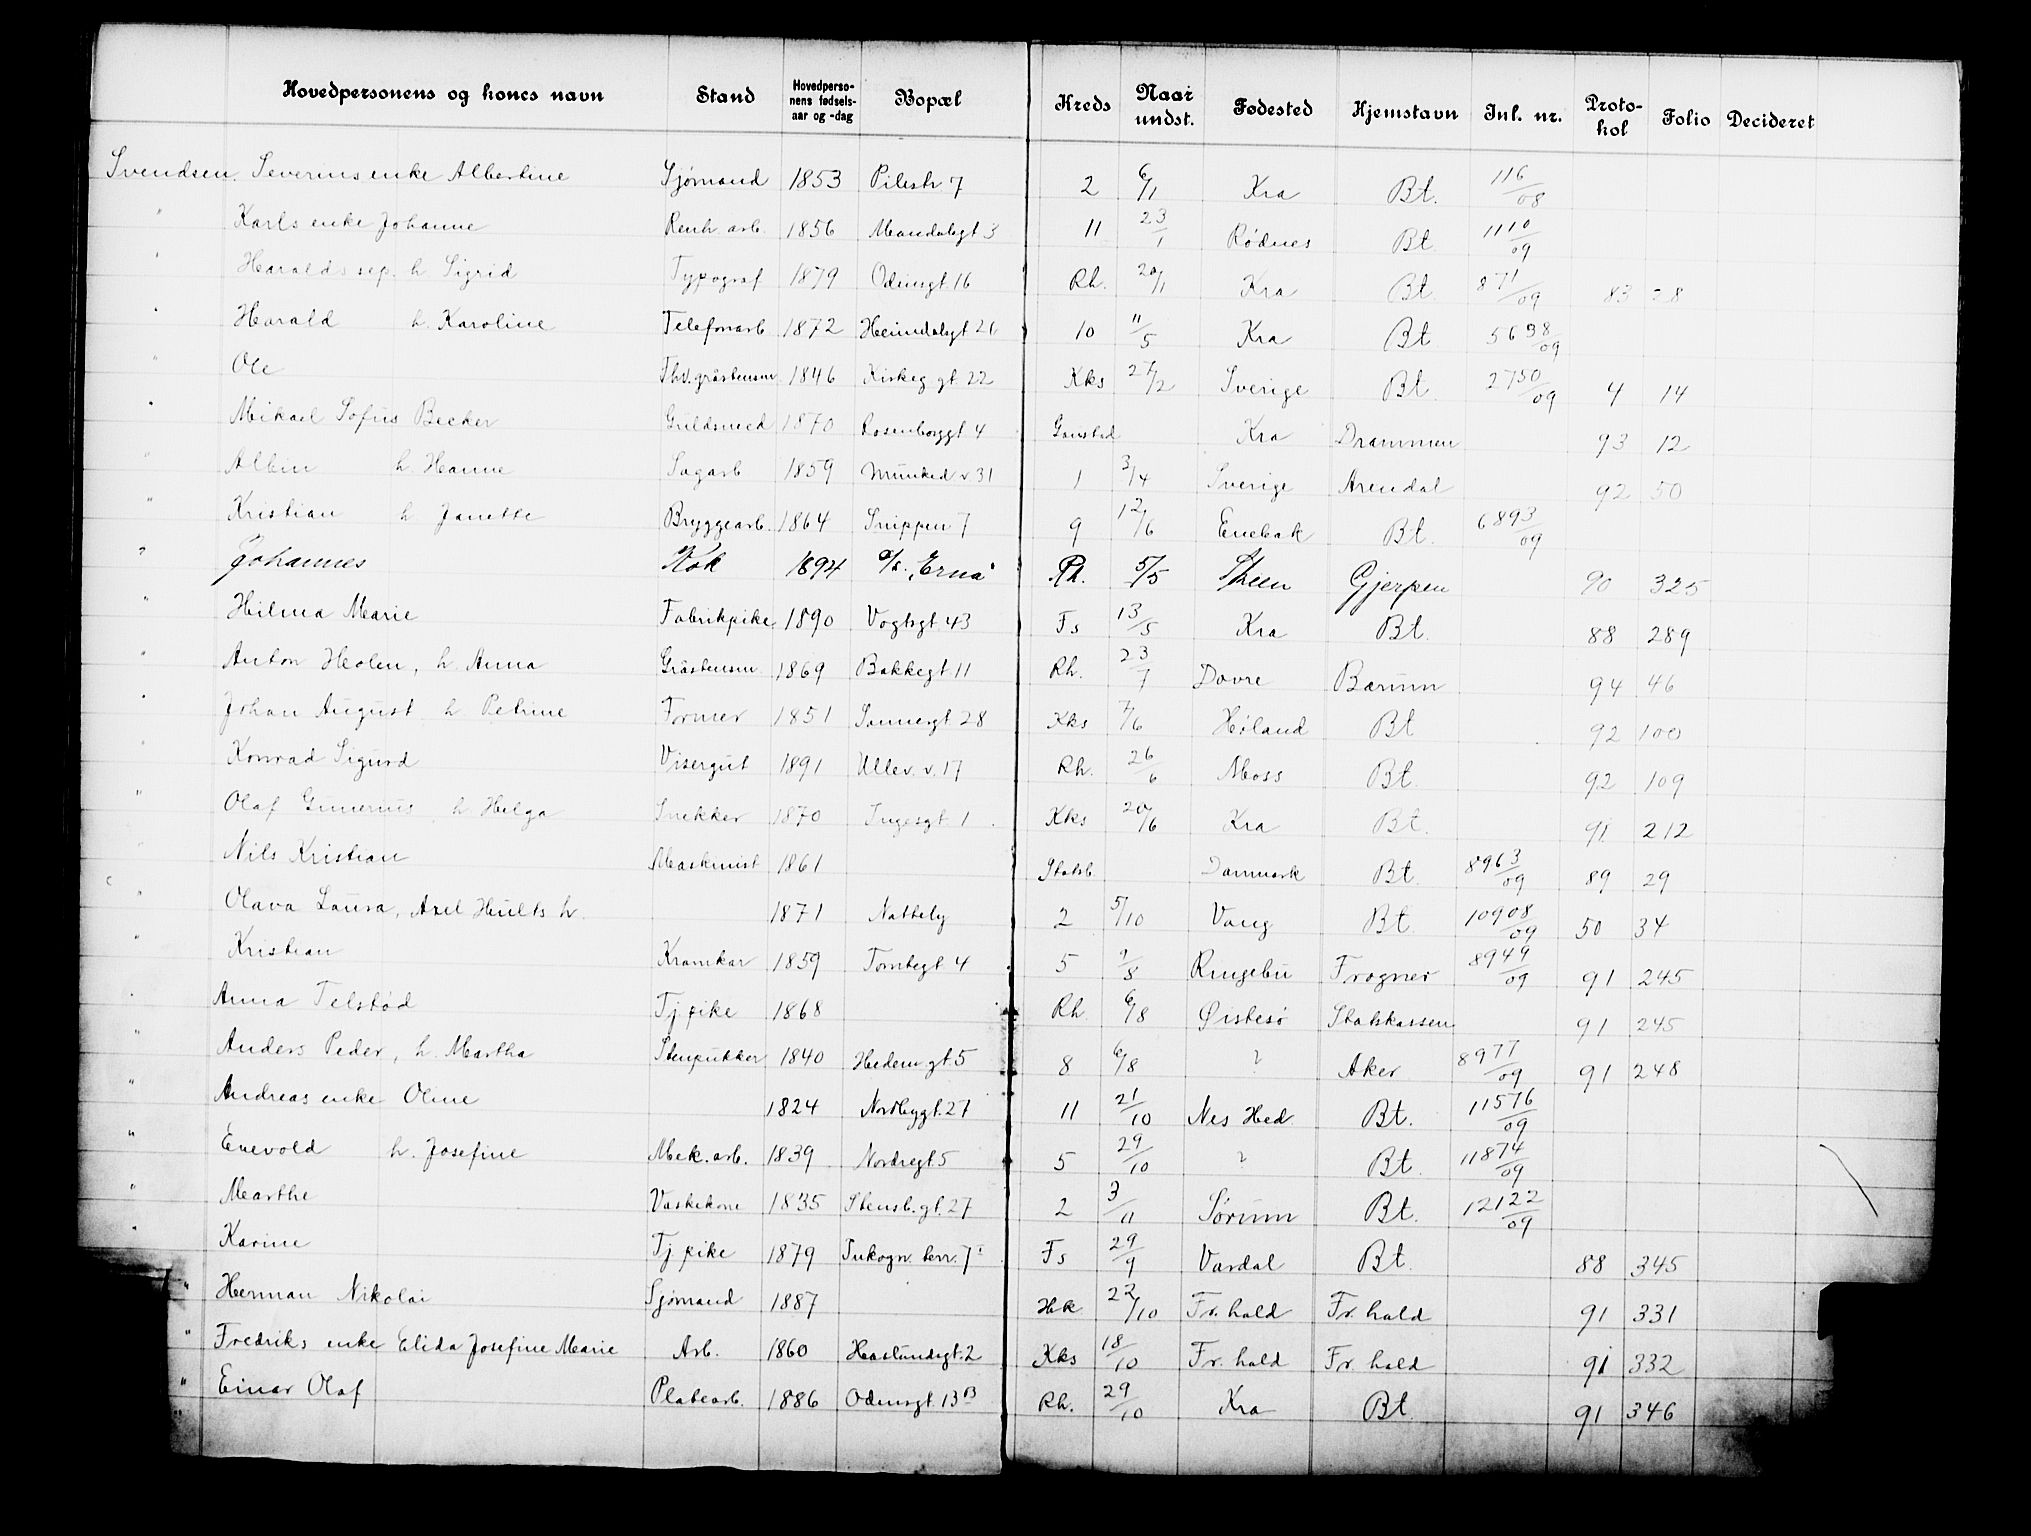 Hovedpersonens og kones navn Stand Hovedperso-nens fødsels-aar og -dag Bopæl Kreds Naar undst. Fødested Hjemstavn Inl. nr. Proto-kol Folio Decideret
Svendsen. Severins enke Albertine Sjømand 1853 Pilestr 7 2 6/1 Kra Bt. 116/08
" Karls enke Johanne Renh. arb. 1856 Mandalsgt 3 11 23/1 Rødnes Bt. 1110/09
" Haralds sep. h Sigrid Typograf 1879 Odinsgt 16 Rh. 20/1 Kra Bt. 871/09 83 28
" Harald h. Karoline Telefonarb 1872 Heimdalsgt 26 10 11/5 Kra Bt 5698/09
" Ole Fhv. gråstensm 1846 Kirkeg gt. 22 Kks 27/2 Sverige Bt. 2750/09 4 14
" Mikael Sofus Becker Guldsmed 1870 Rosenborggt 4 Gausted Kra Drammen 93 12
" Albin h. Hanne Sagarb 1859 Munked v 31 1 3/4 Sverige Arendal 92 50
" Kristian h Janette Bryggearb. 1864 Snippen 7 9 12/6 Enebak Bt. 6893/09
" Johannes Kok 1894 d/s. „Erna" Rh. 5/5 Skien Gjerpen 90 325
" Hilma Marie Fabrikpike 1890 Vogtsgt. 43 Fs 13/5 Kra Bt. 88 289
" Anton Heolen, h. Anna Gråstensm 1869 Bakkegt 11 Rh. 23/1 Dovre Bærum 94 46
" Johan August h. Petrine Former 1851 Sannergt 28 Kks 7/6 Høland Bt 92 100
" Konrad Sigurd Visergut 1891 Ullev. v. 17 Rh. 26/6 Moss Bt. 92 109
" Olaf Gunerius h Helga Snekker 1870 Ingesgt. 1 Kks 20/6 Kra Bt. 91 212
Nils Kristian Maskinist 1861 Statsb. Danmark Bt. 8963/09 89 29
" Olava Laura, Axel Hults h. 1871 Natteby 2 5/10 Vang Bt. 10908/09 50 34
" Kristian Kramkar 1859 Tomtegt 4 5 9/8 Ringebu Frogner 8949/09 91 245
" Anna Telstød Tj. pike 1868 Rh 6/8 Øistesø Statskassen 91 245
" Anders Peder, h. Martha Stenpukker 1840 Hedem. gt. 5 8 6/8 ? Aker 8977/09 91 248
" Andreas enke Oline 1824 Nordbygt. 27 11 21/10 Nes Hed. Bt. 11576/09
" Enevold h. Josefine Mek. arb. 1839 Nordregt. 5 5 29/10 ? Bt. 11874/09
" Marthe Vaskekone 1835 Stensb. gt. 27 2 3/11 Sørum Bt. 12122/09
" Karine Tj. pike 1879 Inkogn. terr. 7 I Fs 29/9 Vardal Bt. 88 345
" Herman Nikolai Sjømand 1887 Hk. 22/10 Fr. hald Fr. hald 91 331
" Fredriks enke Elida Josefine Marie Arb. 1860 Haslundsgt. 2 Kks 18/10 Fr. hald Fr. hald 91 332
" Einar Olaf Platearb. 1886 Odinsgt. 13 B Rh. 29/10 Kra Bt. 91 346
"